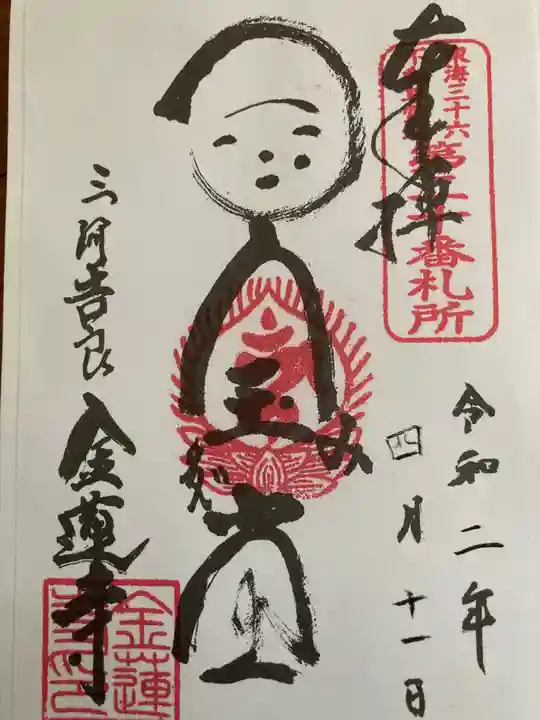 奉拝
東海三十六
第二十番札所
令和二年
四月十一日
み
だ
堂
三河吉良
金蓮寺
金蓮